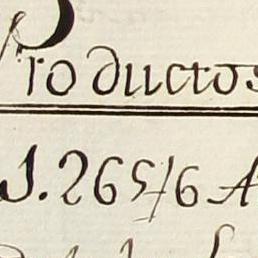 Productos
J. 26576 A